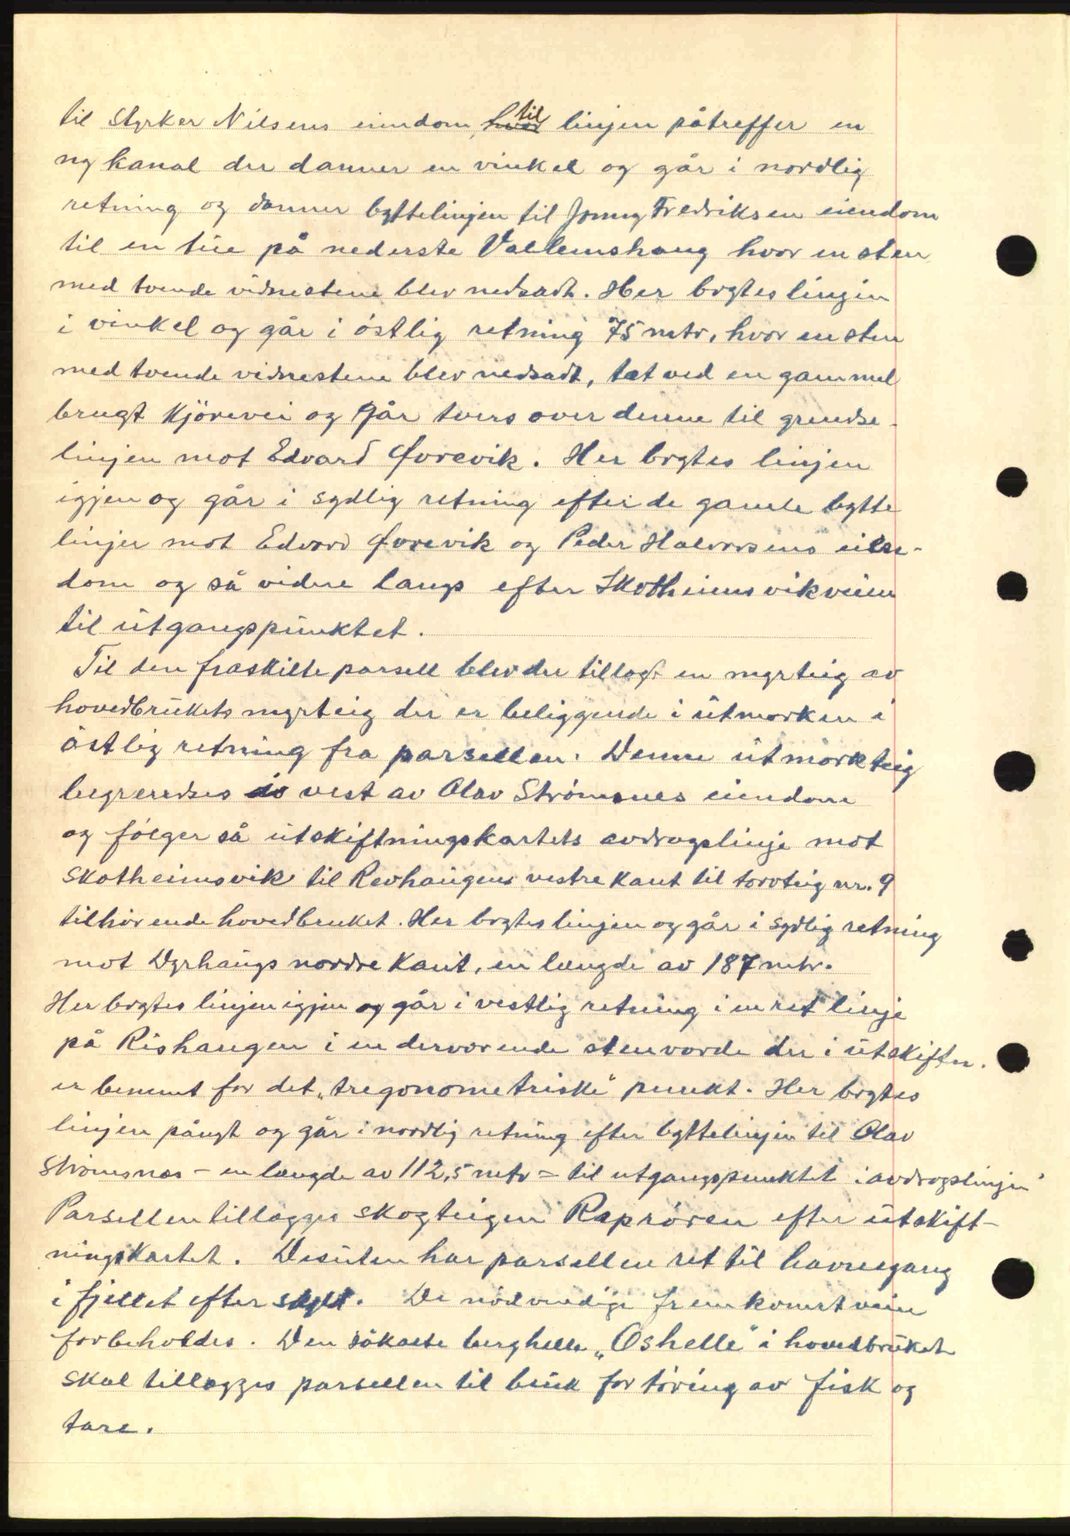 til Styrker Nilsens eiendom, til linjen påtreffer en
ny kanal der danner en vinkel og går i nordlig
retning og danner byttelinjen til Jonny Fredriksen eiendom
til en tue på nederste Vallemshaug hvor en sten
med tvende vidnestene blev nedsadt. Her brytes linjen
i vinkel og går i östlig retning 75 mtr, hvor en sten
med tvende vidnestene blev nedsadt, tæt ved en gammel
brugt kjörevei og går tvers over denne til grendse-
linjen mot Edvard Forevik. Her brytes linjen
igjen og går i sydlig retning efter de gamle bytte
linjer mot Edvard Forevik og Peder Halvorsens eien-
dom og så videre langs efter Skotheimsvikveien
til utgangspunktet.
Til den fraskilte parsell blev der tillagt en myrteig av
hovedbrukets myrteig der er beliggende i utmarken i
östlig retning fra parsellen. Denne utmarkteig
begrendses i vest av Olav Strømsnes eiendom
og følger så utskiftningskartets avdragslinje mot
Skotheimsvik til Revhaugens vestre kant til torvteig nr. 9
tilhörende hovedbruket. Her brytes linjen og går i sydlig retning
mot Dyrhaugs nordre kant, en længde av 187 mtr.
Her brytes linjen igjen og går i vestlig retning i en ret linje
på Rishaugen i en derværende stenvarde der i utskiftn.
er benevnt for det „tregonometriske" punkt. Her brytes
linjen pånyt og går i nordlig retning efter byttelinjen til Olav
Strømsnes – en længde av 112,5 mtr = til utgangspunktet i avdragslinjen
Parsellen tillægges skogteigen Raprören efter utskift-
ningskartet. Desuten har parsellen ret til havnegang
i fjellet efter skyld. De nödvendige fremkomstveier
forbeholdes. Den såkalte berghelle „Oshelle" i hovedbruket
skal tillægges parsellen til bruk for töring av fisk og
tare.